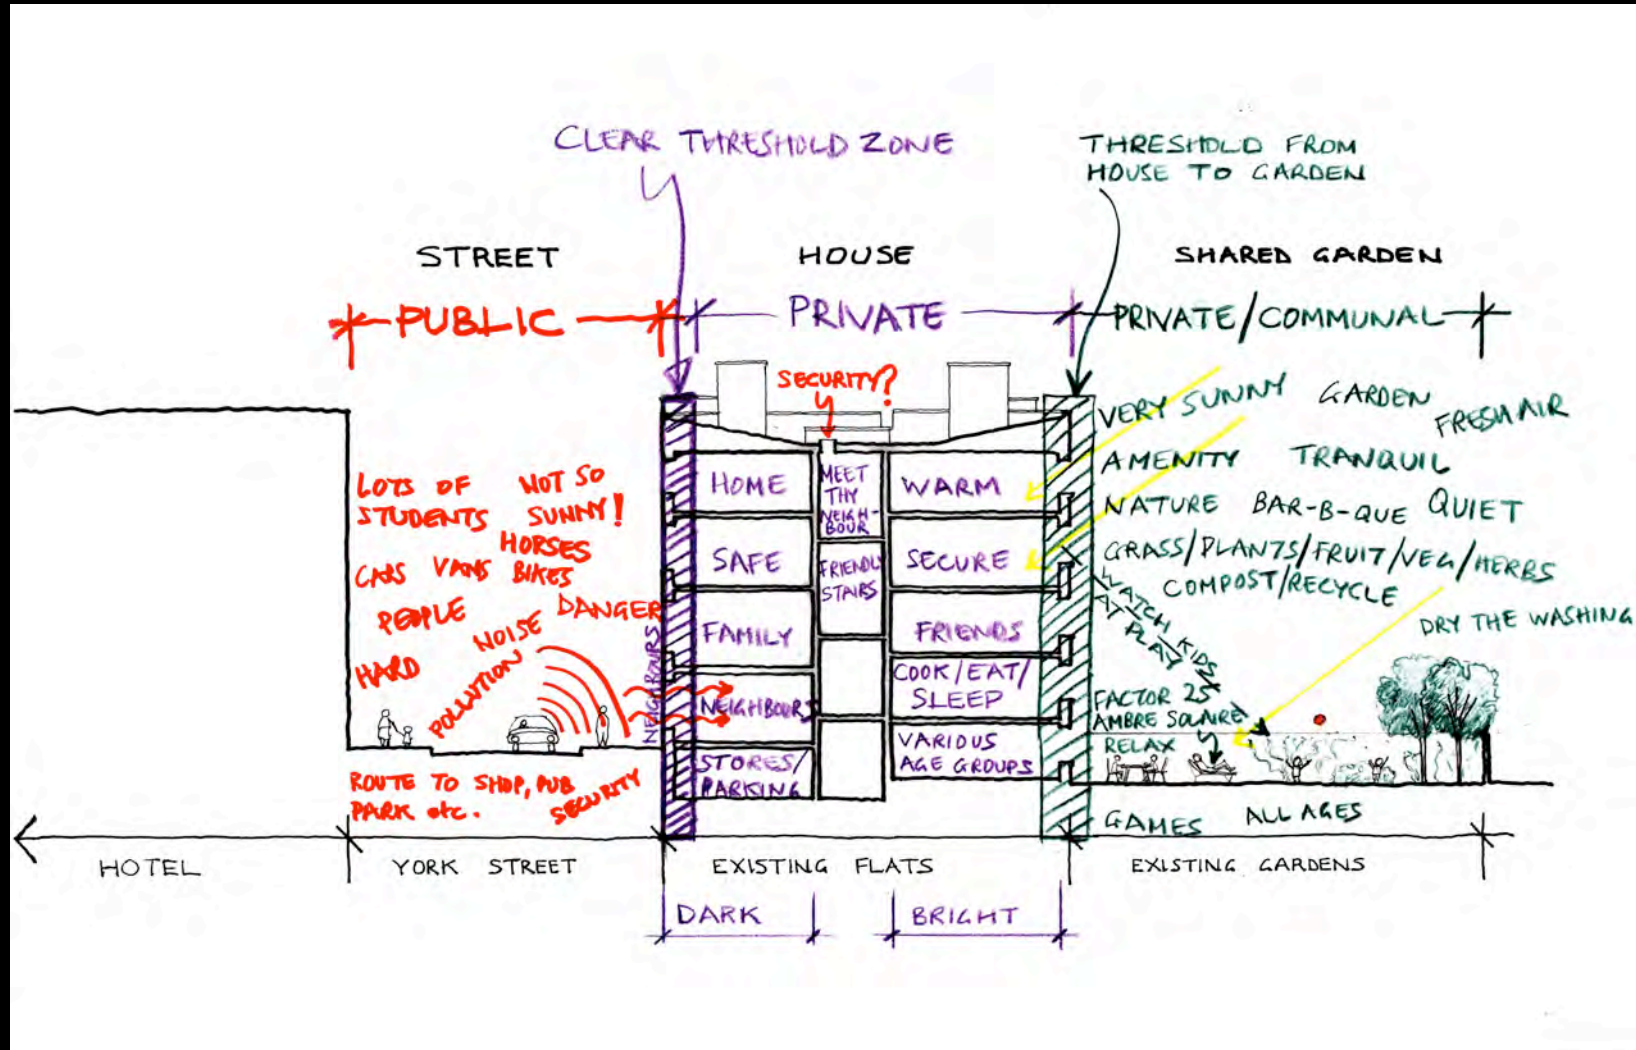 CLEAR THRESHOLD ZONE
THRESHOLD FROM
HOUSE TO GARDEN
STREET
HOUSE
SHARED GARDEN
PUBLIC
PRIVATE
PRIVATE/COMMUNAL
SECURITY?
LOTS OF
STUDENTS
NOT SO
SUNNY!
HORSES
CARS VANS BIKES
PEOPLE
DANGER
NOISE
HARD
POLLUTION
NEIGHBOURS
ROUTE TO SHOP, PUB
PARK etc.
SECURITY
HOME
SAFE
FAMILY
NEIGHBOURS
STORES/
PARKING
MEET
THY
NEIGH-
BOUR
FRIENDLY
STAIRS
WARM
SECURE
FRIENDS
COOK/EAT/
SLEEP
VARIOUS
AGE GROUPS
VERY SUNNY GARDEN
FRESH AIR
AMENITY TRANQUIL
NATURE BAR-B-QUE QUIET
GRASS/PLANTS/FRUIT/VEG/HERBS
COMPOST/RECYCLE
WATCH KIDS
AT PLAY
DRY THE WASHING
FACTOR 25
AMBRE SOLAIRE
RELAX
GAMES ALL AGES
HOTEL
YORK STREET
EXISTING FLATS
EXISTING GARDENS
DARK
BRIGHT